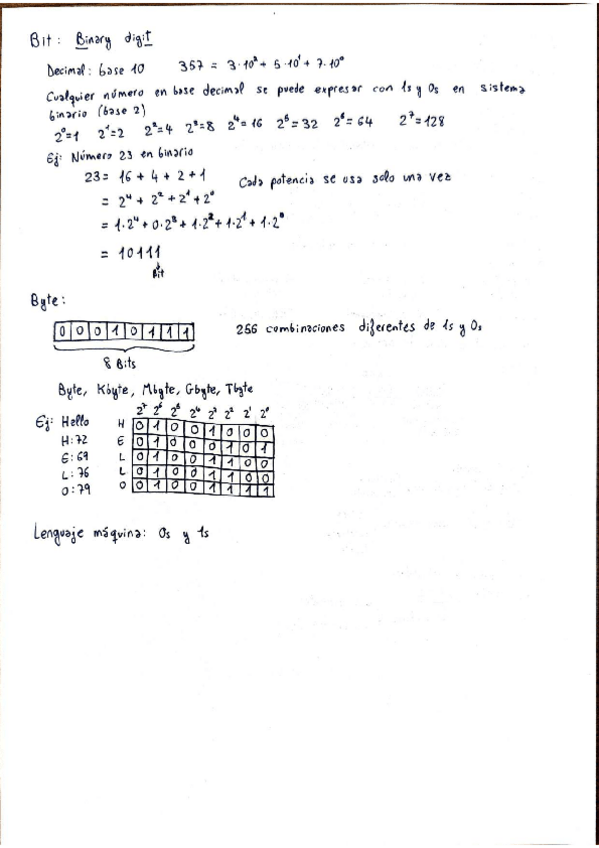 Bit: Binary digit
Decimal: base 10 357 = 3·10² + 5·10¹ + 7·10⁰
Cualquier número en base decimal se puede expresar con 1s y 0s en sistema
binario (base 2)
2⁰=1 2¹=2 2²=4 2³=8 2⁴=16 2⁵=32 2⁶=64 2⁷=128
Ej: Número 23 en binario
23 = 16 + 4 + 2 + 1 Cada potencia se usa solo una vez
= 2⁴ + 2² + 2¹ + 2⁰
= 1·2⁴ + 0·2³ + 1·2² + 1·2¹ + 1·2⁰
= 10111
Bit
Byte:
0 0 0 1 0 1 1 1 256 combinaciones diferentes de 1s y 0s
8 Bits
Byte, Kbyte, Mbyte, Gbyte, Tbyte
2⁷ 2⁶ 2⁵ 2⁴ 2³ 2² 2¹ 2⁰
Ej: Hello H 0 1 0 0 1 0 0 0
H: 72 E 0 1 0 0 0 1 0 1
E: 69 L 0 1 0 0 1 1 0 0
L: 76 L 0 1 0 0 1 1 0 0
O: 79 O 0 1 0 0 1 1 1 1
Lenguaje máquina: 0s y 1s